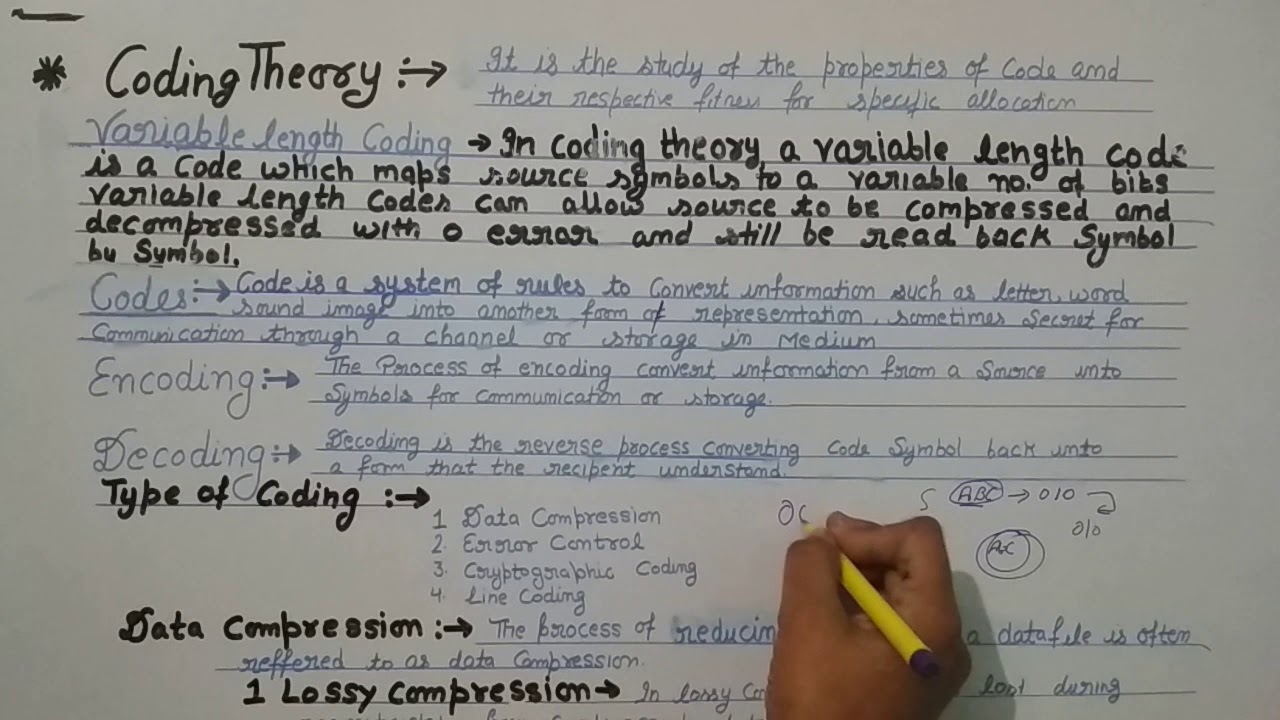 * Coding Theory :→ It is the study of the properties of Code and
their respective fitness for specific allocation
Variable length Coding → In coding theory a variable length code
is a code which maps source symbols to a variable no. of bits
variable length Codes can allow source to be compressed and
decompressed with 0 error and still be read back Symbol
by Symbol.
Codes :→ Code is a system of rules to Convert information such as letter, word
sound image into another form of representation, sometimes secret for
Communication through a channel or storage in Medium
Encoding :→ The Process of encoding convert information from a Source into
Symbols for communication or storage.
Decoding :→ Decoding is the reverse process converting Code Symbol back into
a form that the recipent understand.
Type of Coding :→
S ABC → 010
010
1 Data Compression
2. Error Control
3. Cryptographic Coding
4. Line Coding
Data Compression :→ The process of reducin a datafile is often
reffered to as data Compression.
1 Lossy Compression → In lossy lost during